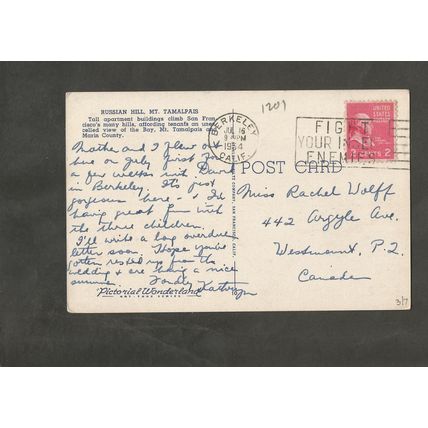 RUSSIAN HILL, MT. TAMALPAIS
Tall apartment buildings climb San Fran-
cisco's many hills, affording tenants an unex-
celled view of the Bay, Mt. Tamalpais and
Marin County.
Mother and I flew out
here on July first for
a few weeks with
in Berkeley. It's just
gorgeous here - & I'm
having great fun with
the three children.
I'll write a long overdue
letter soon. Hope you've
gotten rested up from the
wedding & are having a nice
summer. Fondly
Pictorial Wonderland
1201
BERKELEY
JUL 16
PM
1954
CALIF.
FIGHT
YOUR
ENEMIES
UNITED STATES
POSTAGE
2 CENTS 2
POST CARD
Miss Rachel Wolff
442 Argyle Ave.
Westmount, P.Q.
Canada
3/7